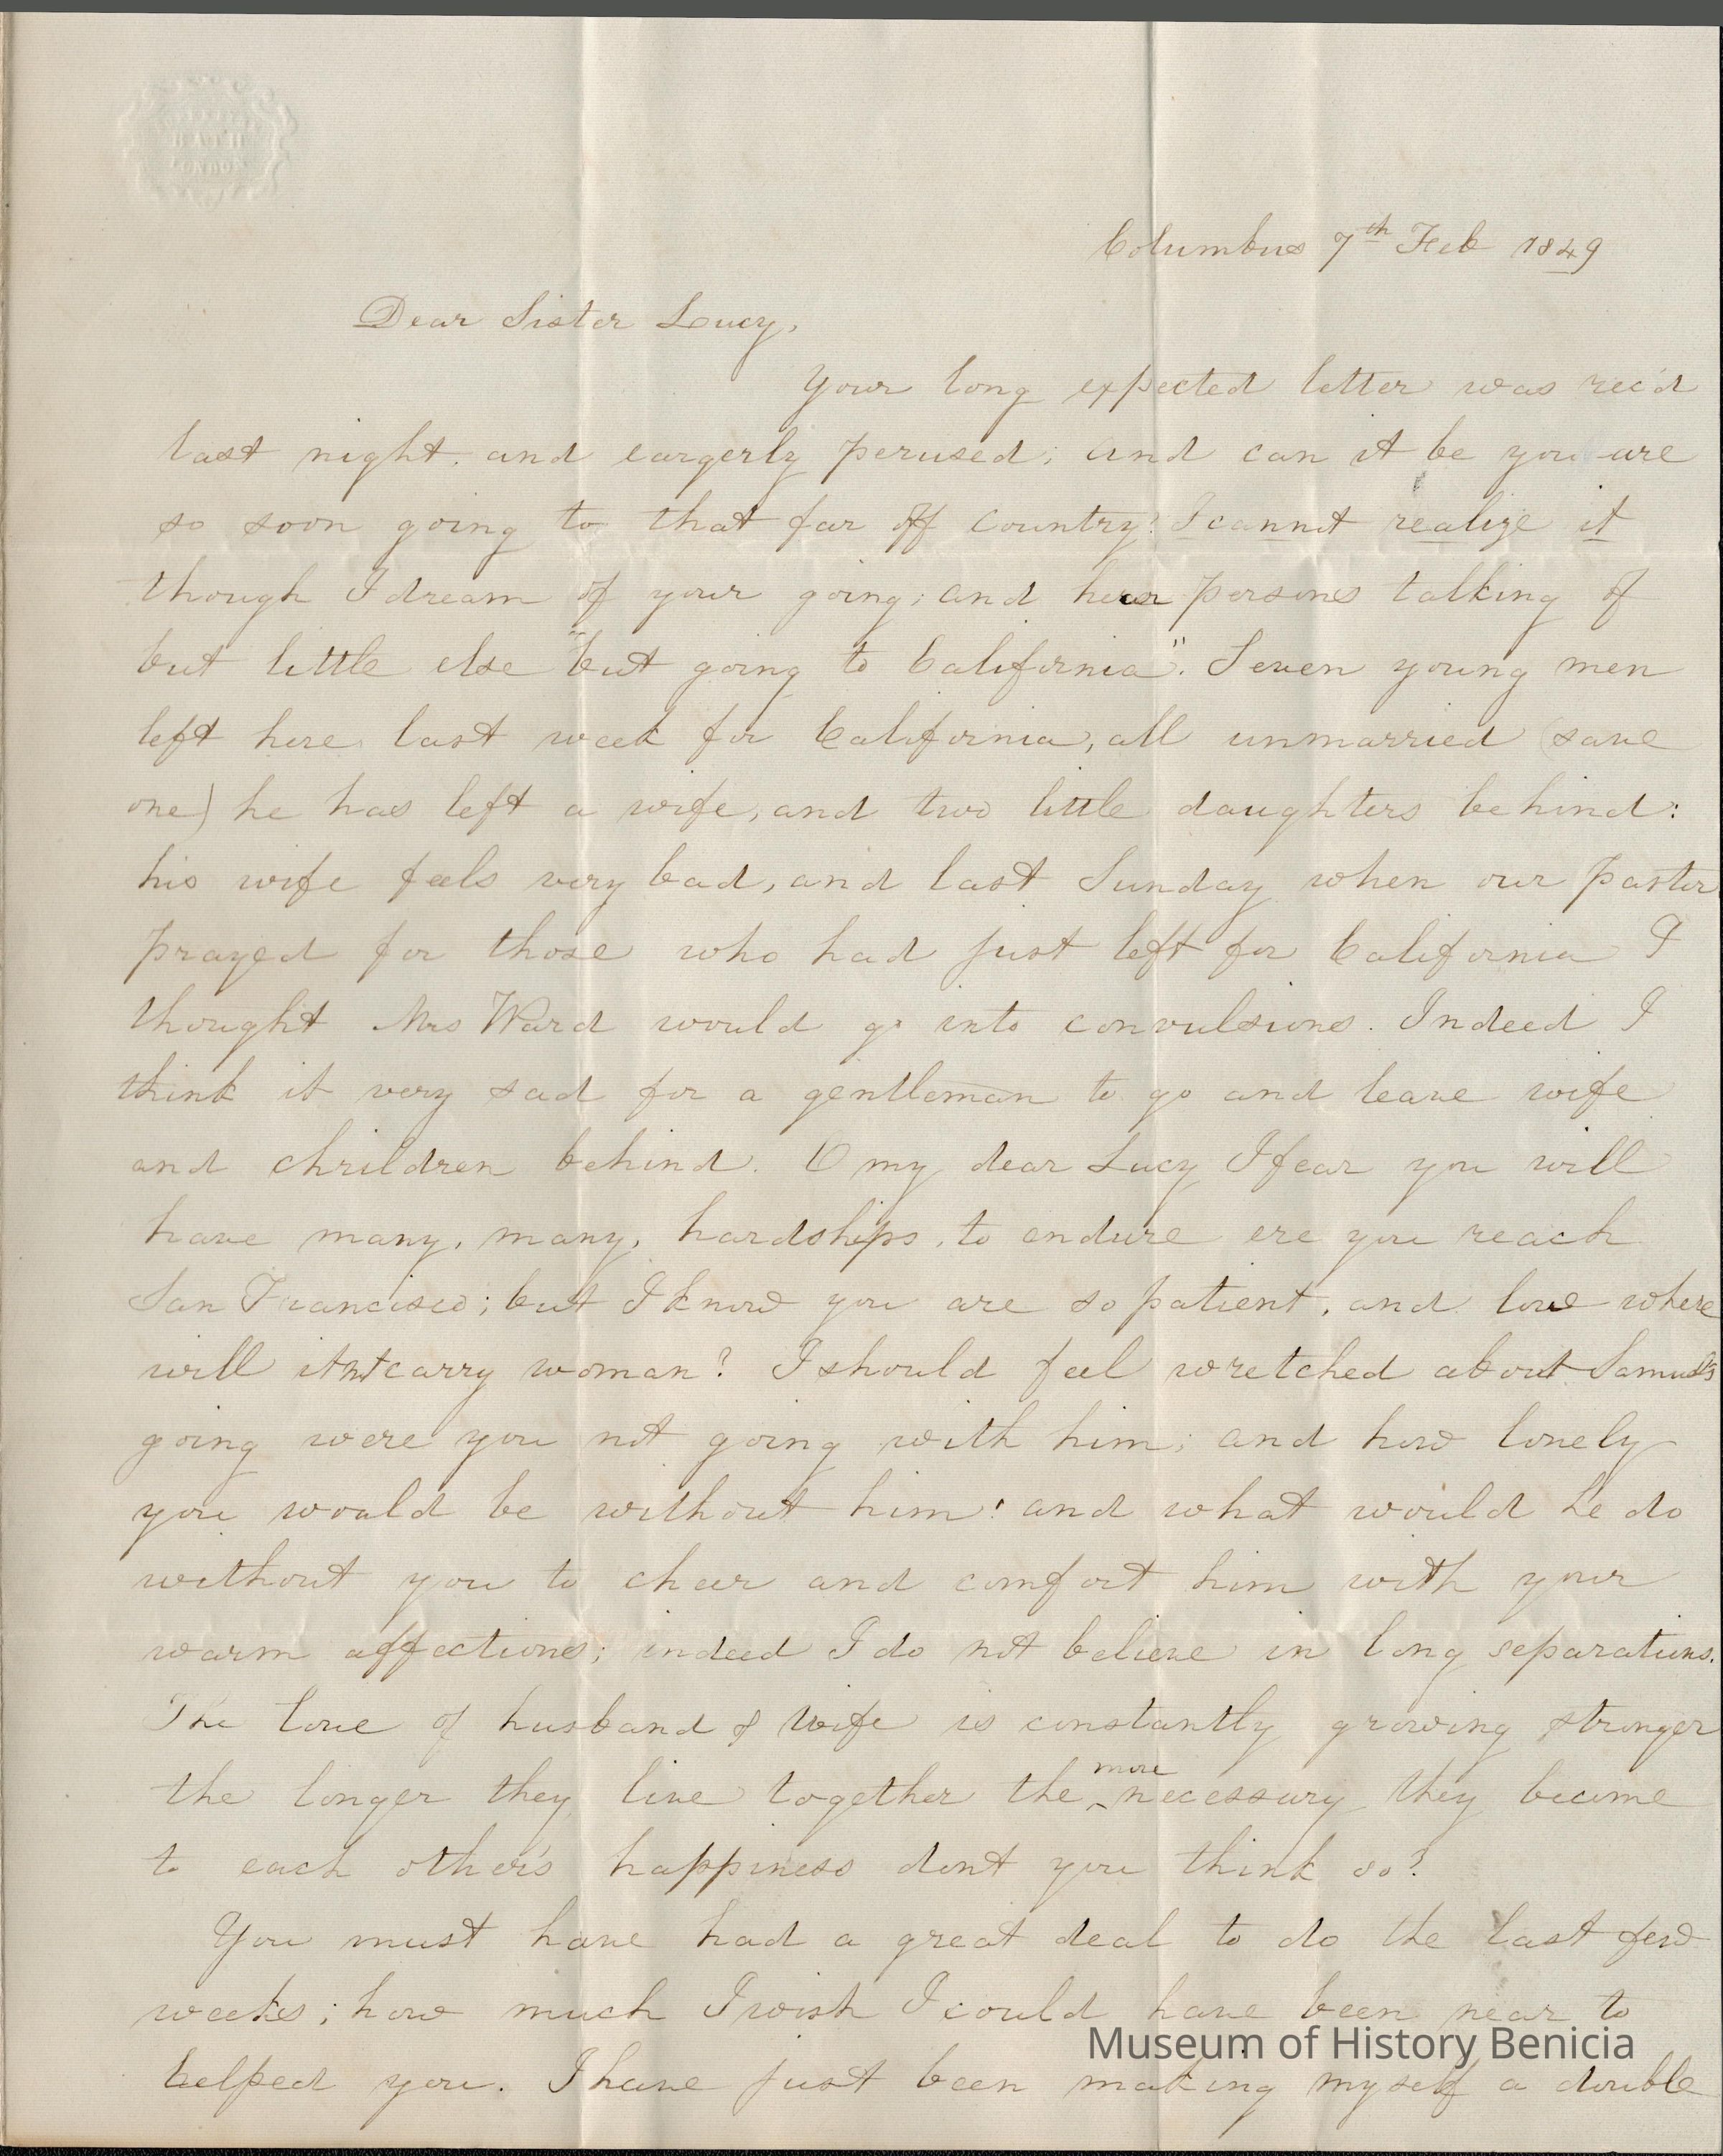 BATH
LONDON
Columbus 7th Feb 1849
Dear Sister Lucy,
Your long expected letter was rec'd
last night, and eargerly perused; and can it be you are
so soon going to that far off country? I cannot realize it
though I dream of your going; and hear persons talking of
but little else "but going to California". Seven young men
left here last week for California, all unmarried (save
one) he has left a wife, and two little daughters behind:
his wife feels very bad, and last Sunday when our pastor
prayed for those who had just left for California I
thought Mrs Ward would go into convulsions. Indeed I
think it very sad for a gentleman to go and leave wife
and chrildren behind. O my dear Lucy I fear you will
have many, many, hardships, to endure ere you reach
San Francisco; but I know you are so patient, and love where
will it not carry woman? I should feel wretched about Samuel's
going were you not going with him; and how lonely
you would be without him! and what would he do
without you to cheer and comfort him with your
warm affections; indeed I do not believe in long separations.
The love of husband & wife is constantly growing stronger
the longer they live together the ^more necessary they become
to each other's happiness dont you think so?
You must have had a great deal to do the last few
weeks; how much I wish I could have been near to
helped you. I have just been making myself a double
Museum of History Benicia